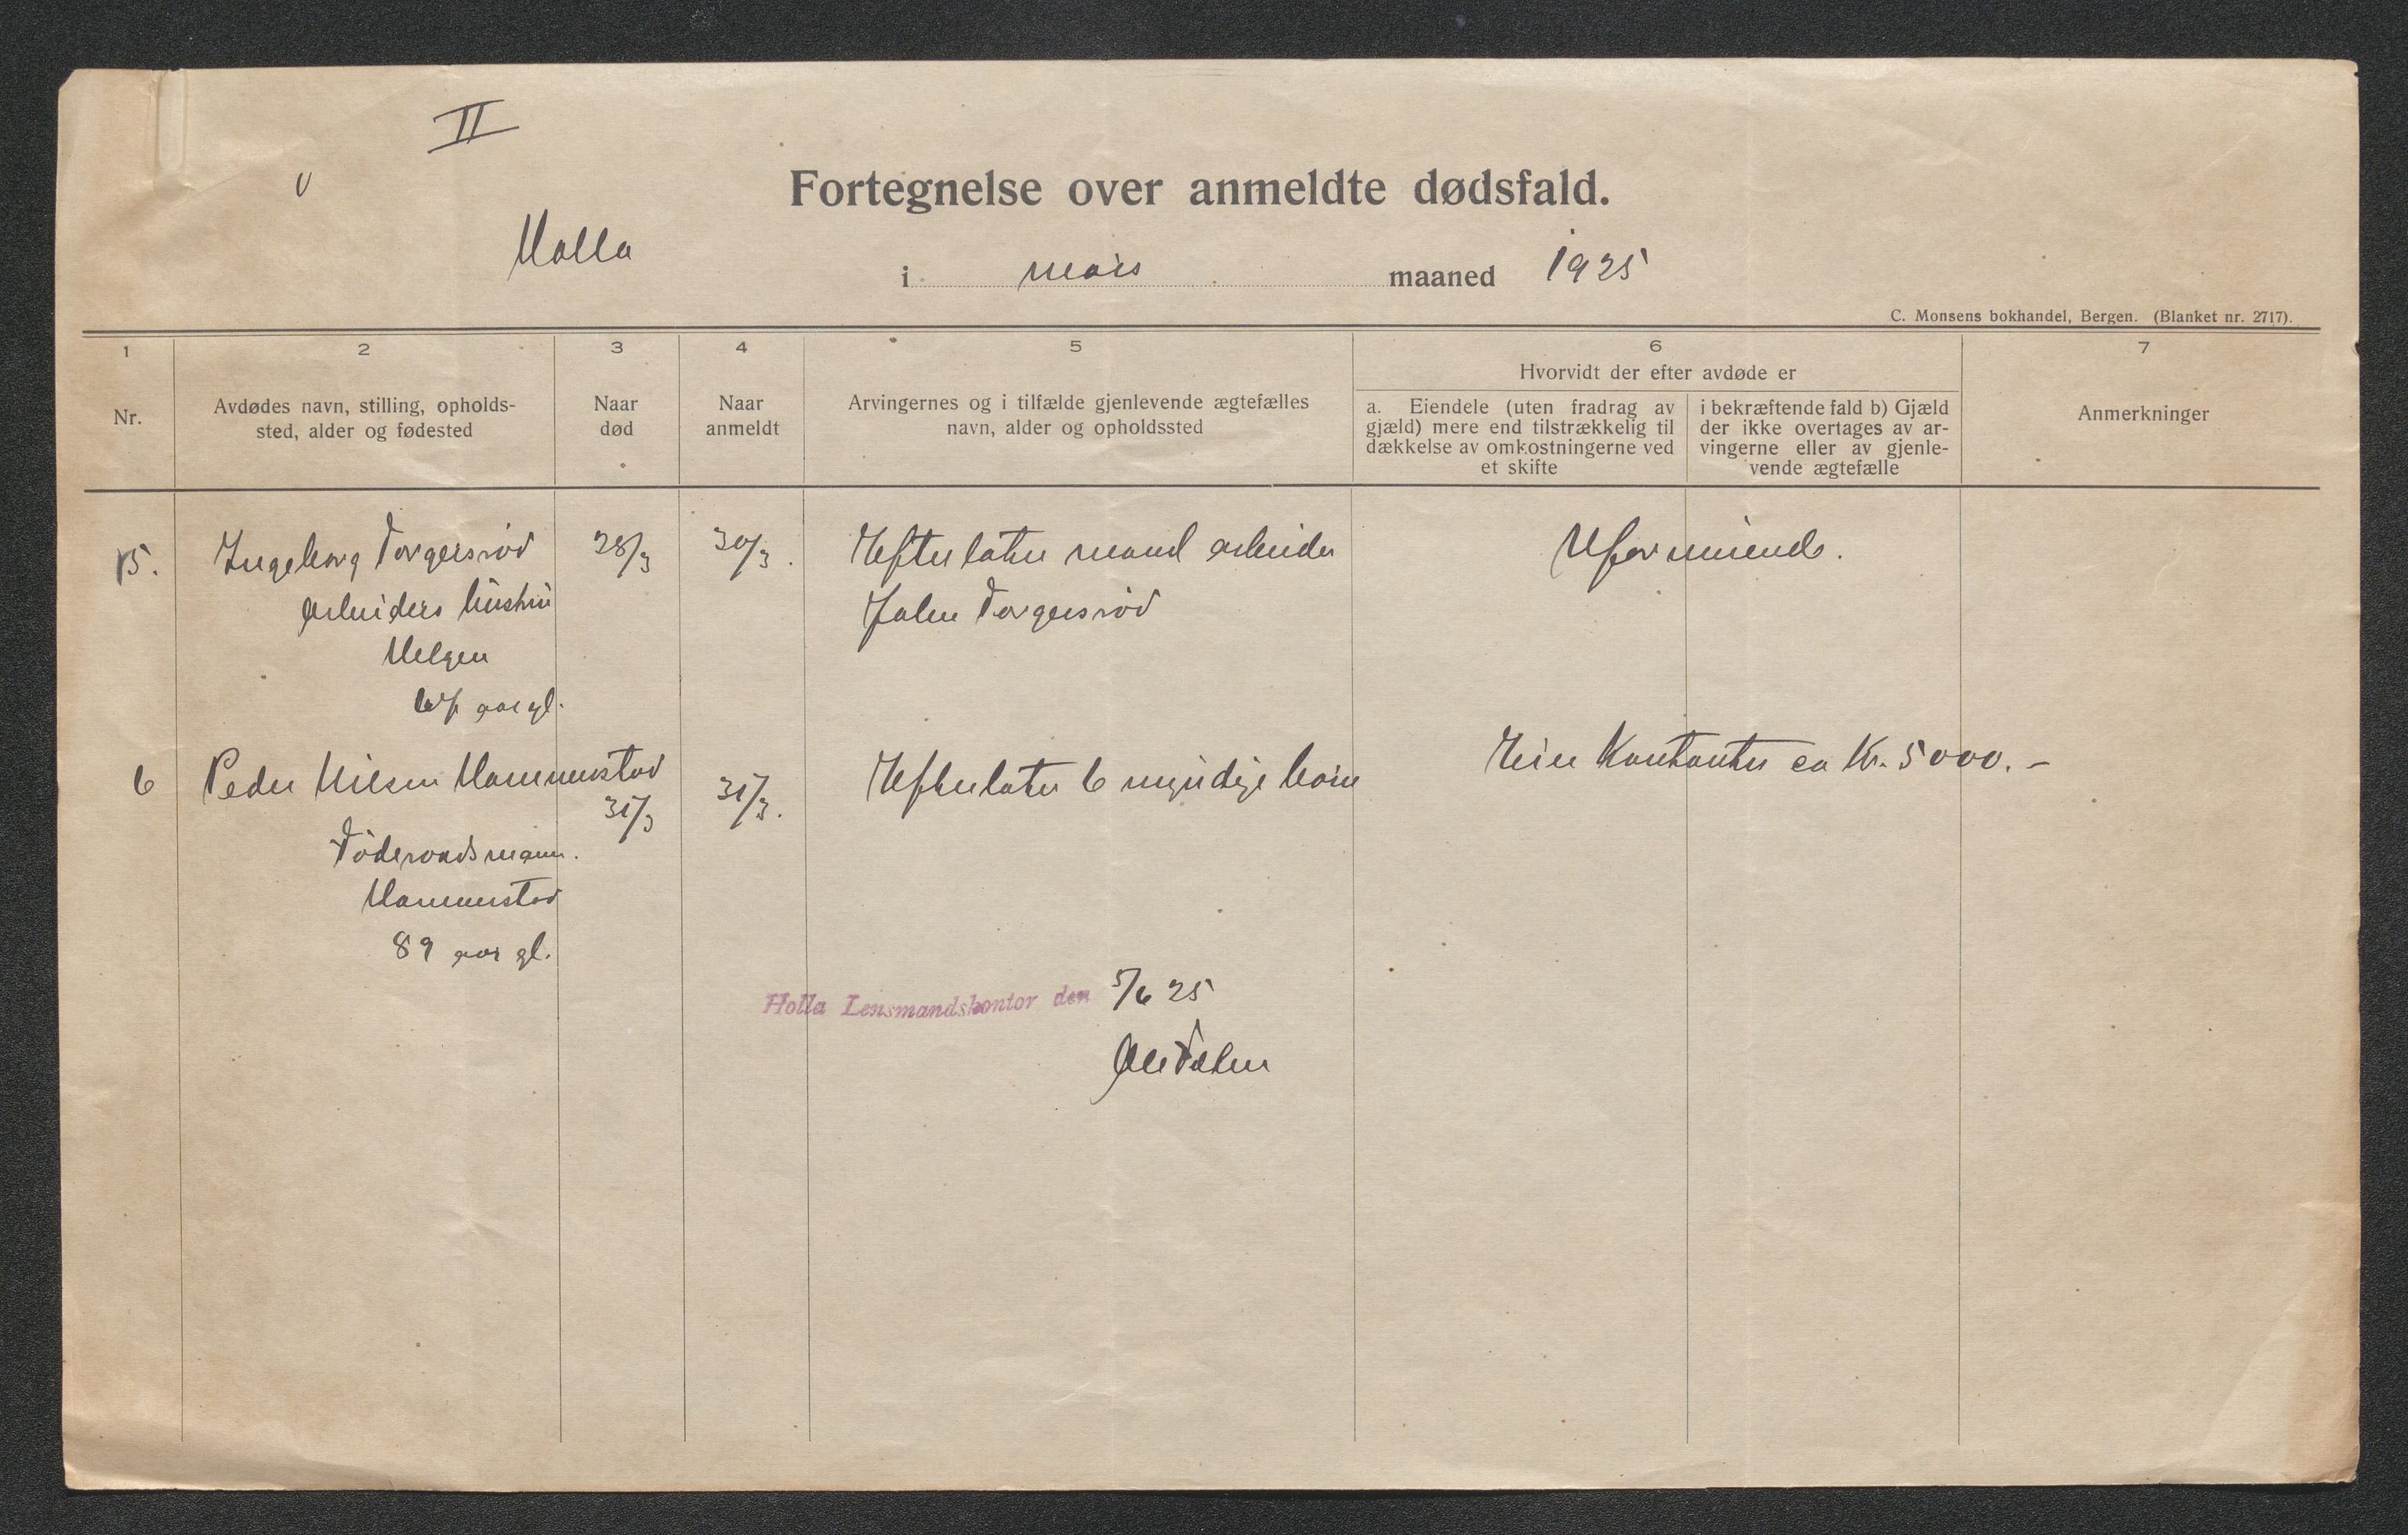 II
Fortegnelse over anmeldte dødsfald.
Holla
i mars maaned 1925
C. Monsens bokhandel, Bergen. (Blanket nr. 2717).
1
2
3
4
5
6
7
Nr.
Avdødes navn, stilling, opholds-
sted, alder og fødested
Naar
død
Naar
anmeldt
Arvingernes og i tilfælde gjenlevende ægtefælles
navn, alder og opholdssted
Hvorvidt der efter avdøde er
a. Eiendele (uten fradrag av
gjæld) mere end tilstrækkelig til
dækkelse av omkostningerne ved
et skifte
i bekræftende fald b) Gjæld
der ikke overtages av ar-
vingerne eller av gjenle-
vende ægtefælle
Anmerkninger
5.
Ingeborg Torgersrød
Arbeiders hustru
Helgen
aar gl.
28/3
30/3.
Efterlater mand arbeider
John Torgersrød
Uformuende.
6
Peder Nilsen Hammerstad
Föderaadsmann.
Hammerstad
89 aar gl.
31/3
31/3.
Efterlater 6 myndige barn
Eier Kontanter ca Kr. 5000.-
Holla Lensmandskontor den 5/6 25